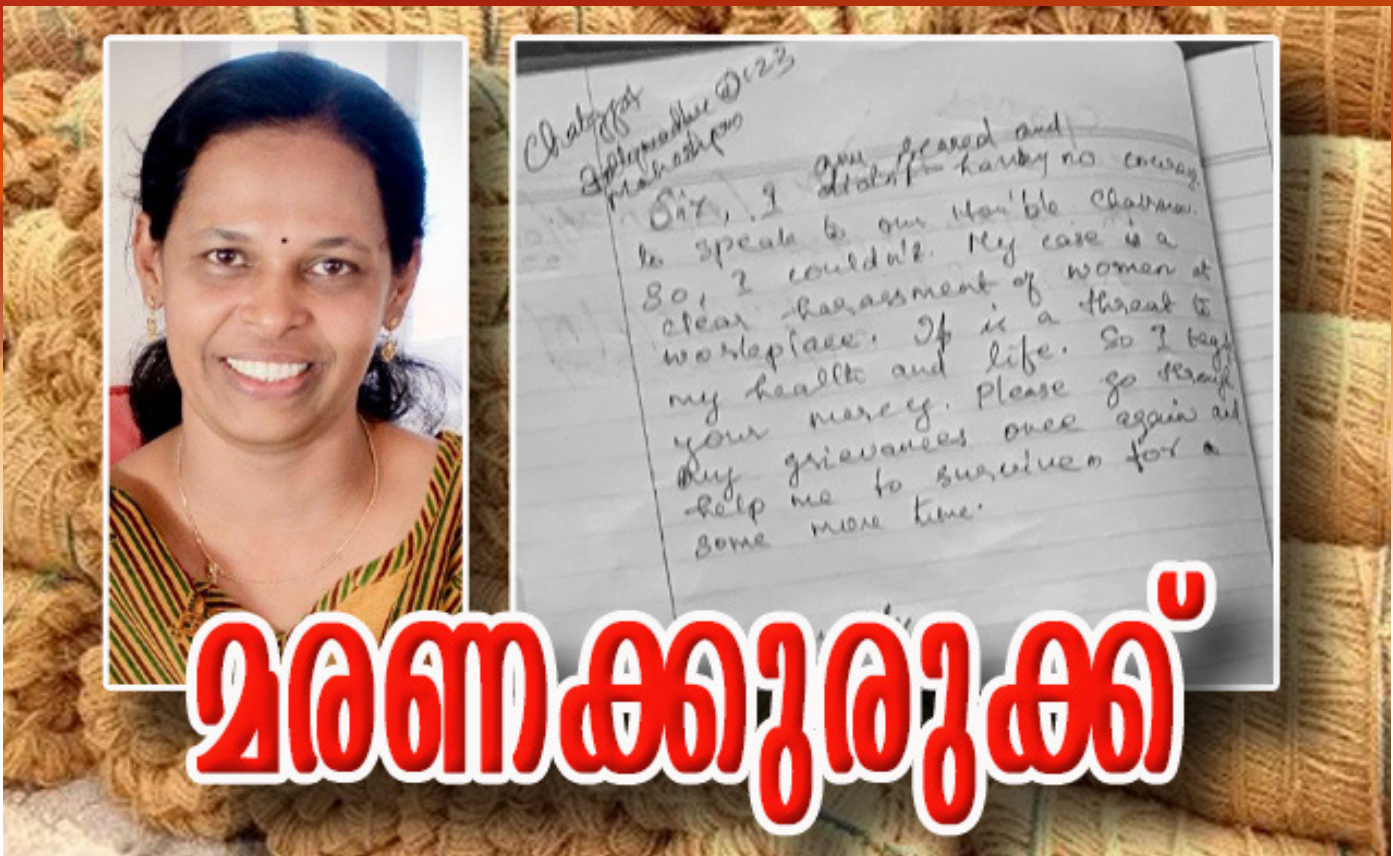 Sir, I am scared and
having no courage
to speak to our Hon'ble Chairman.
So, I couldn't. My case is a
clear harassment of women at
workplace. It is a threat to
my health and life. So I begs
your mercy. Please go through
my grievances once again and
help me to survive for
some more time.
മരണക്കുരുക്ക്